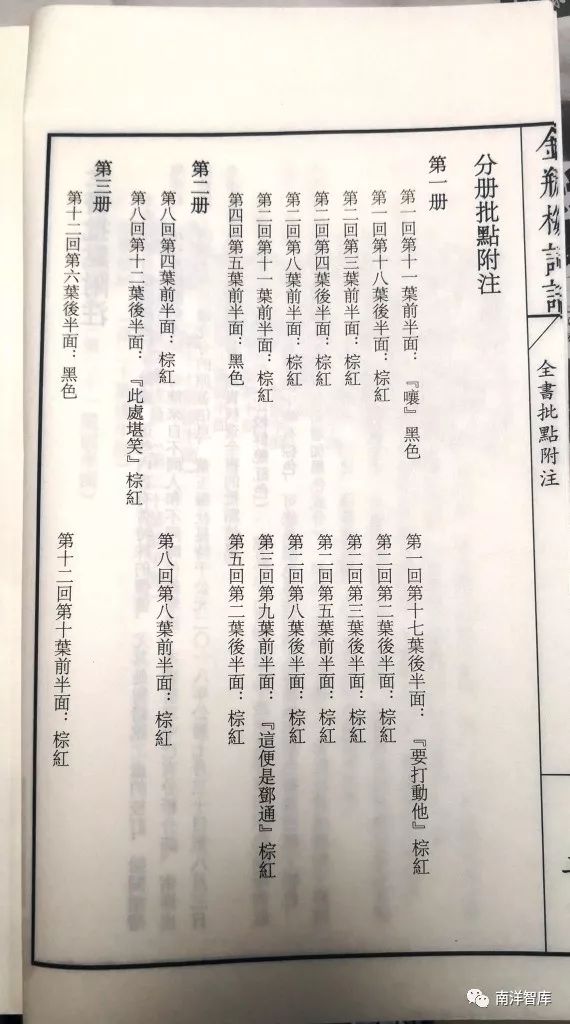 金瓶梅詞話
全書批點附注
分册批點附注
第一册
第一回第十一葉前半面：『嚷』黑色　第一回第十七葉後半面：『要打動他』棕紅
第一回第十八葉後半面：棕紅　第二回第二葉後半面：棕紅
第二回第三葉前半面：棕紅　第二回第三葉後半面：棕紅
第二回第四葉後半面：棕紅　第二回第五葉前半面：棕紅
第二回第八葉前半面：棕紅　第二回第八葉後半面：棕紅
第二回第十一葉前半面：棕紅　第三回第九葉前半面：『這便是鄧通』棕紅
第四回第五葉前半面：黑色　第五回第二葉後半面：棕紅
第二册
第八回第四葉前半面：棕紅　第八回第八葉前半面：棕紅
第八回第十二葉後半面：『此處堪笑』棕紅
第三册
第十二回第六葉後半面：黑色　第十二回第十葉前半面：棕紅
南洋智库